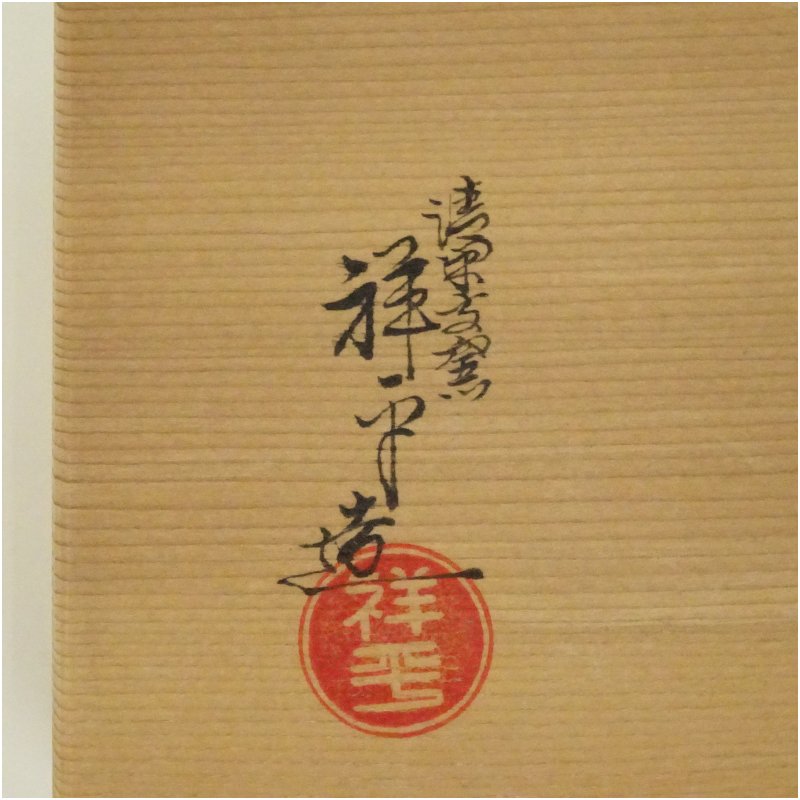 清閑寺窯
祥平造
祥平